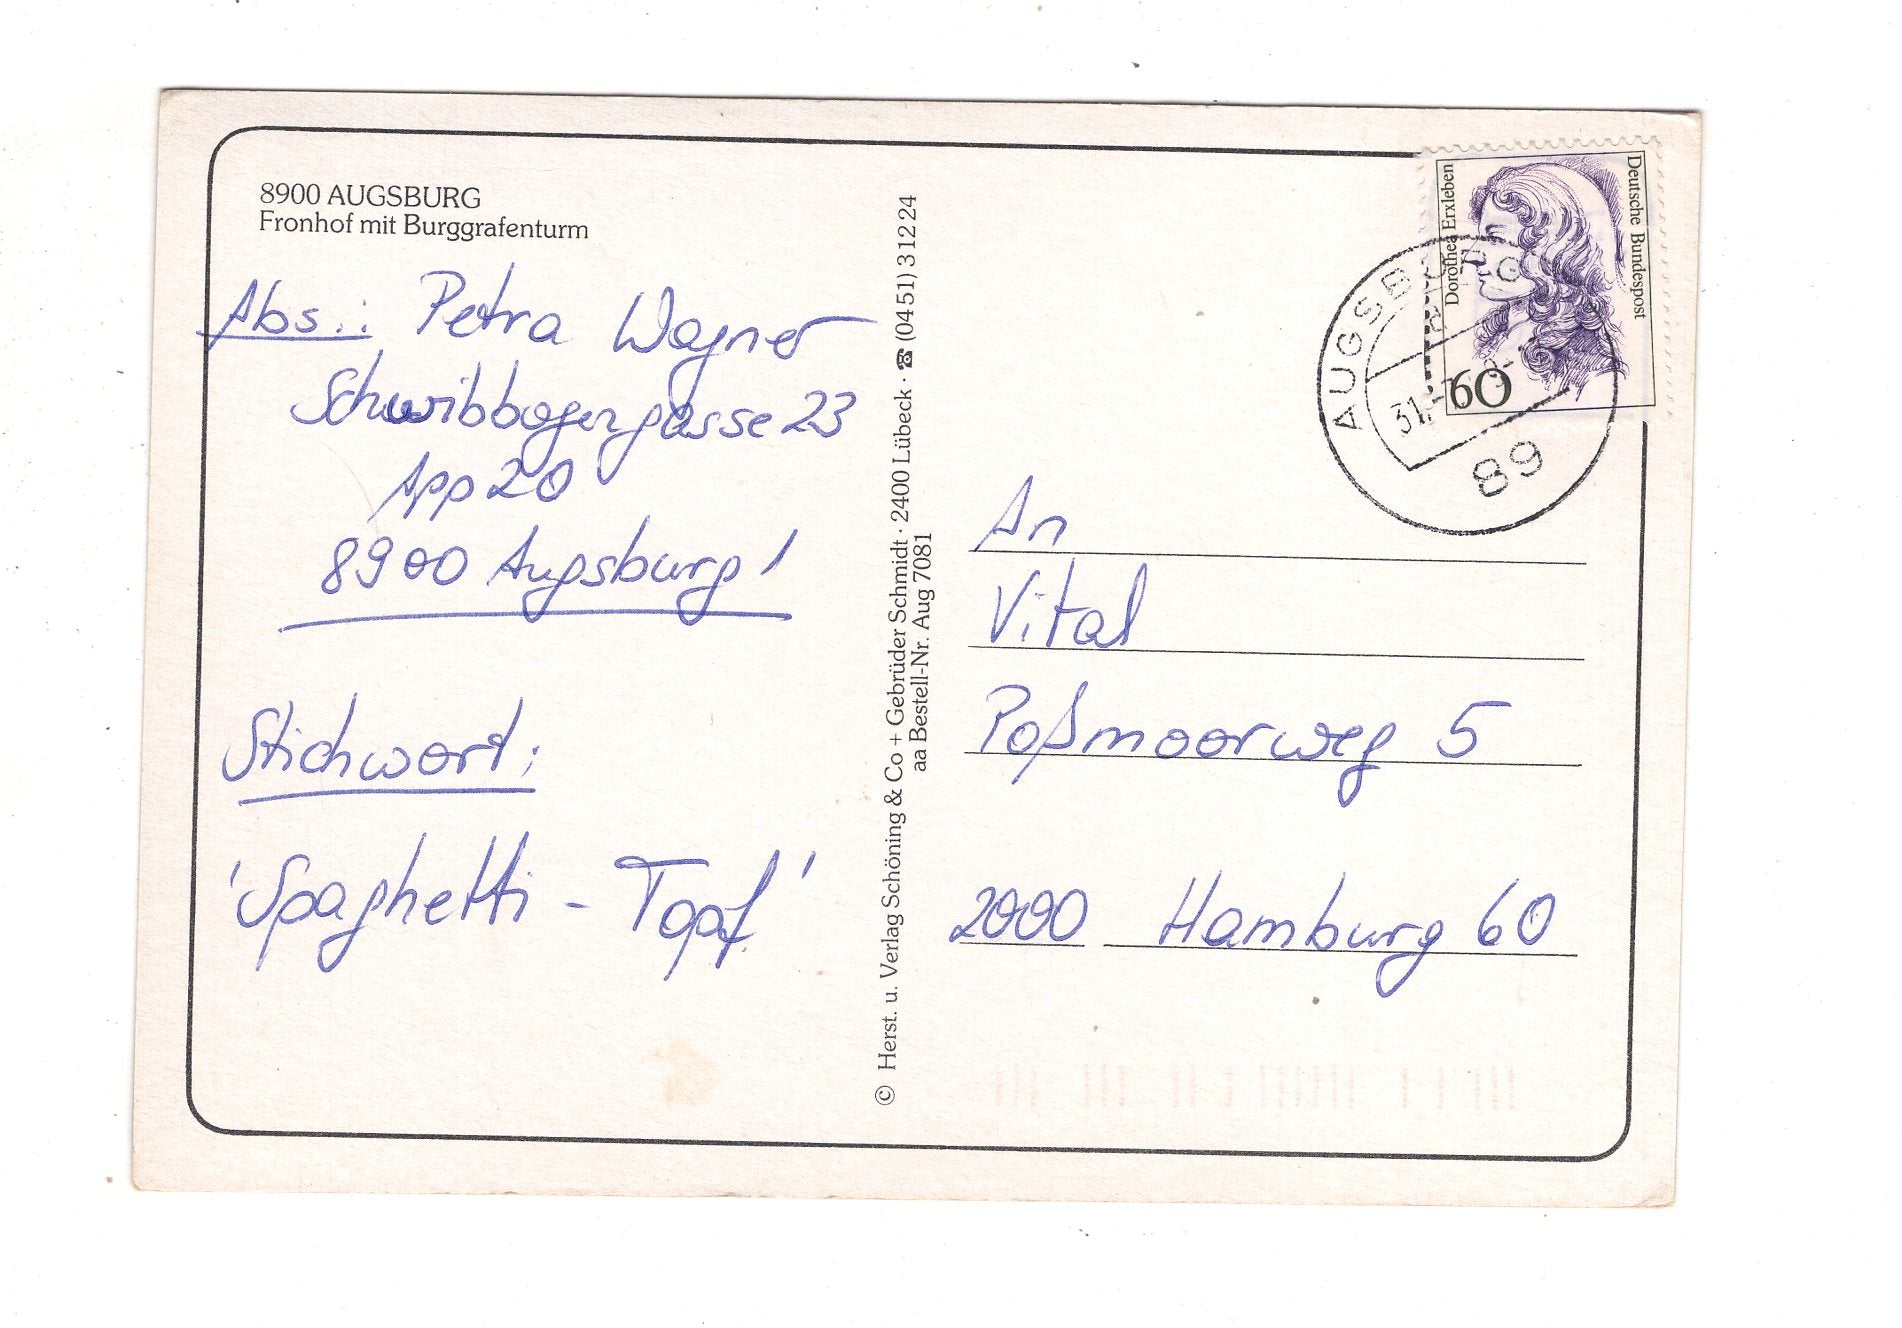 8900 AUGSBURG
Fronhof mit Burggrafenturm
Abs.: Petra Wagner
Schwibbogengasse 23
App 20
8900 Augsburg!
Stichwort:
'Spaghetti - Topf'
© Herst. u. Verlag Schöning & Co + Gebrüder Schmidt · 2400 Lübeck · ☎ (0451) 31224
aa Bestell-Nr. Aug 7081
Deutsche Bundespost
Dorothea Erxleben
60
AUGSBURG
31.
89
An
Vital
Poßmoorweg 5
2000 Hamburg 60